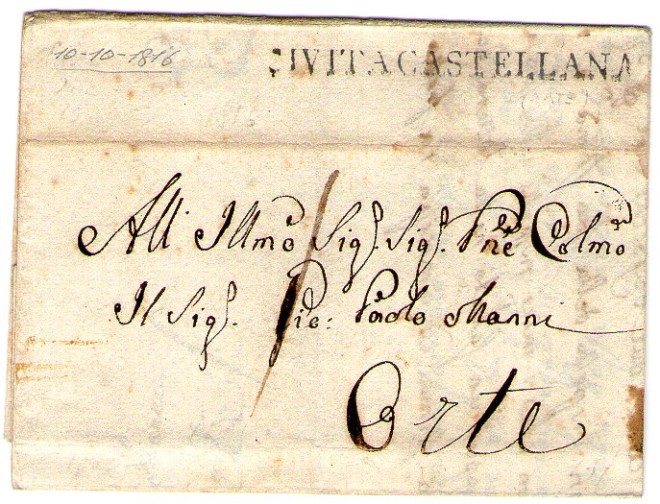 10-10-1816
CIVITACASTELLANA
All Illmo Sig. Sig. Pne Colmo
Il Sig. Gio: Paolo Manni
Orte